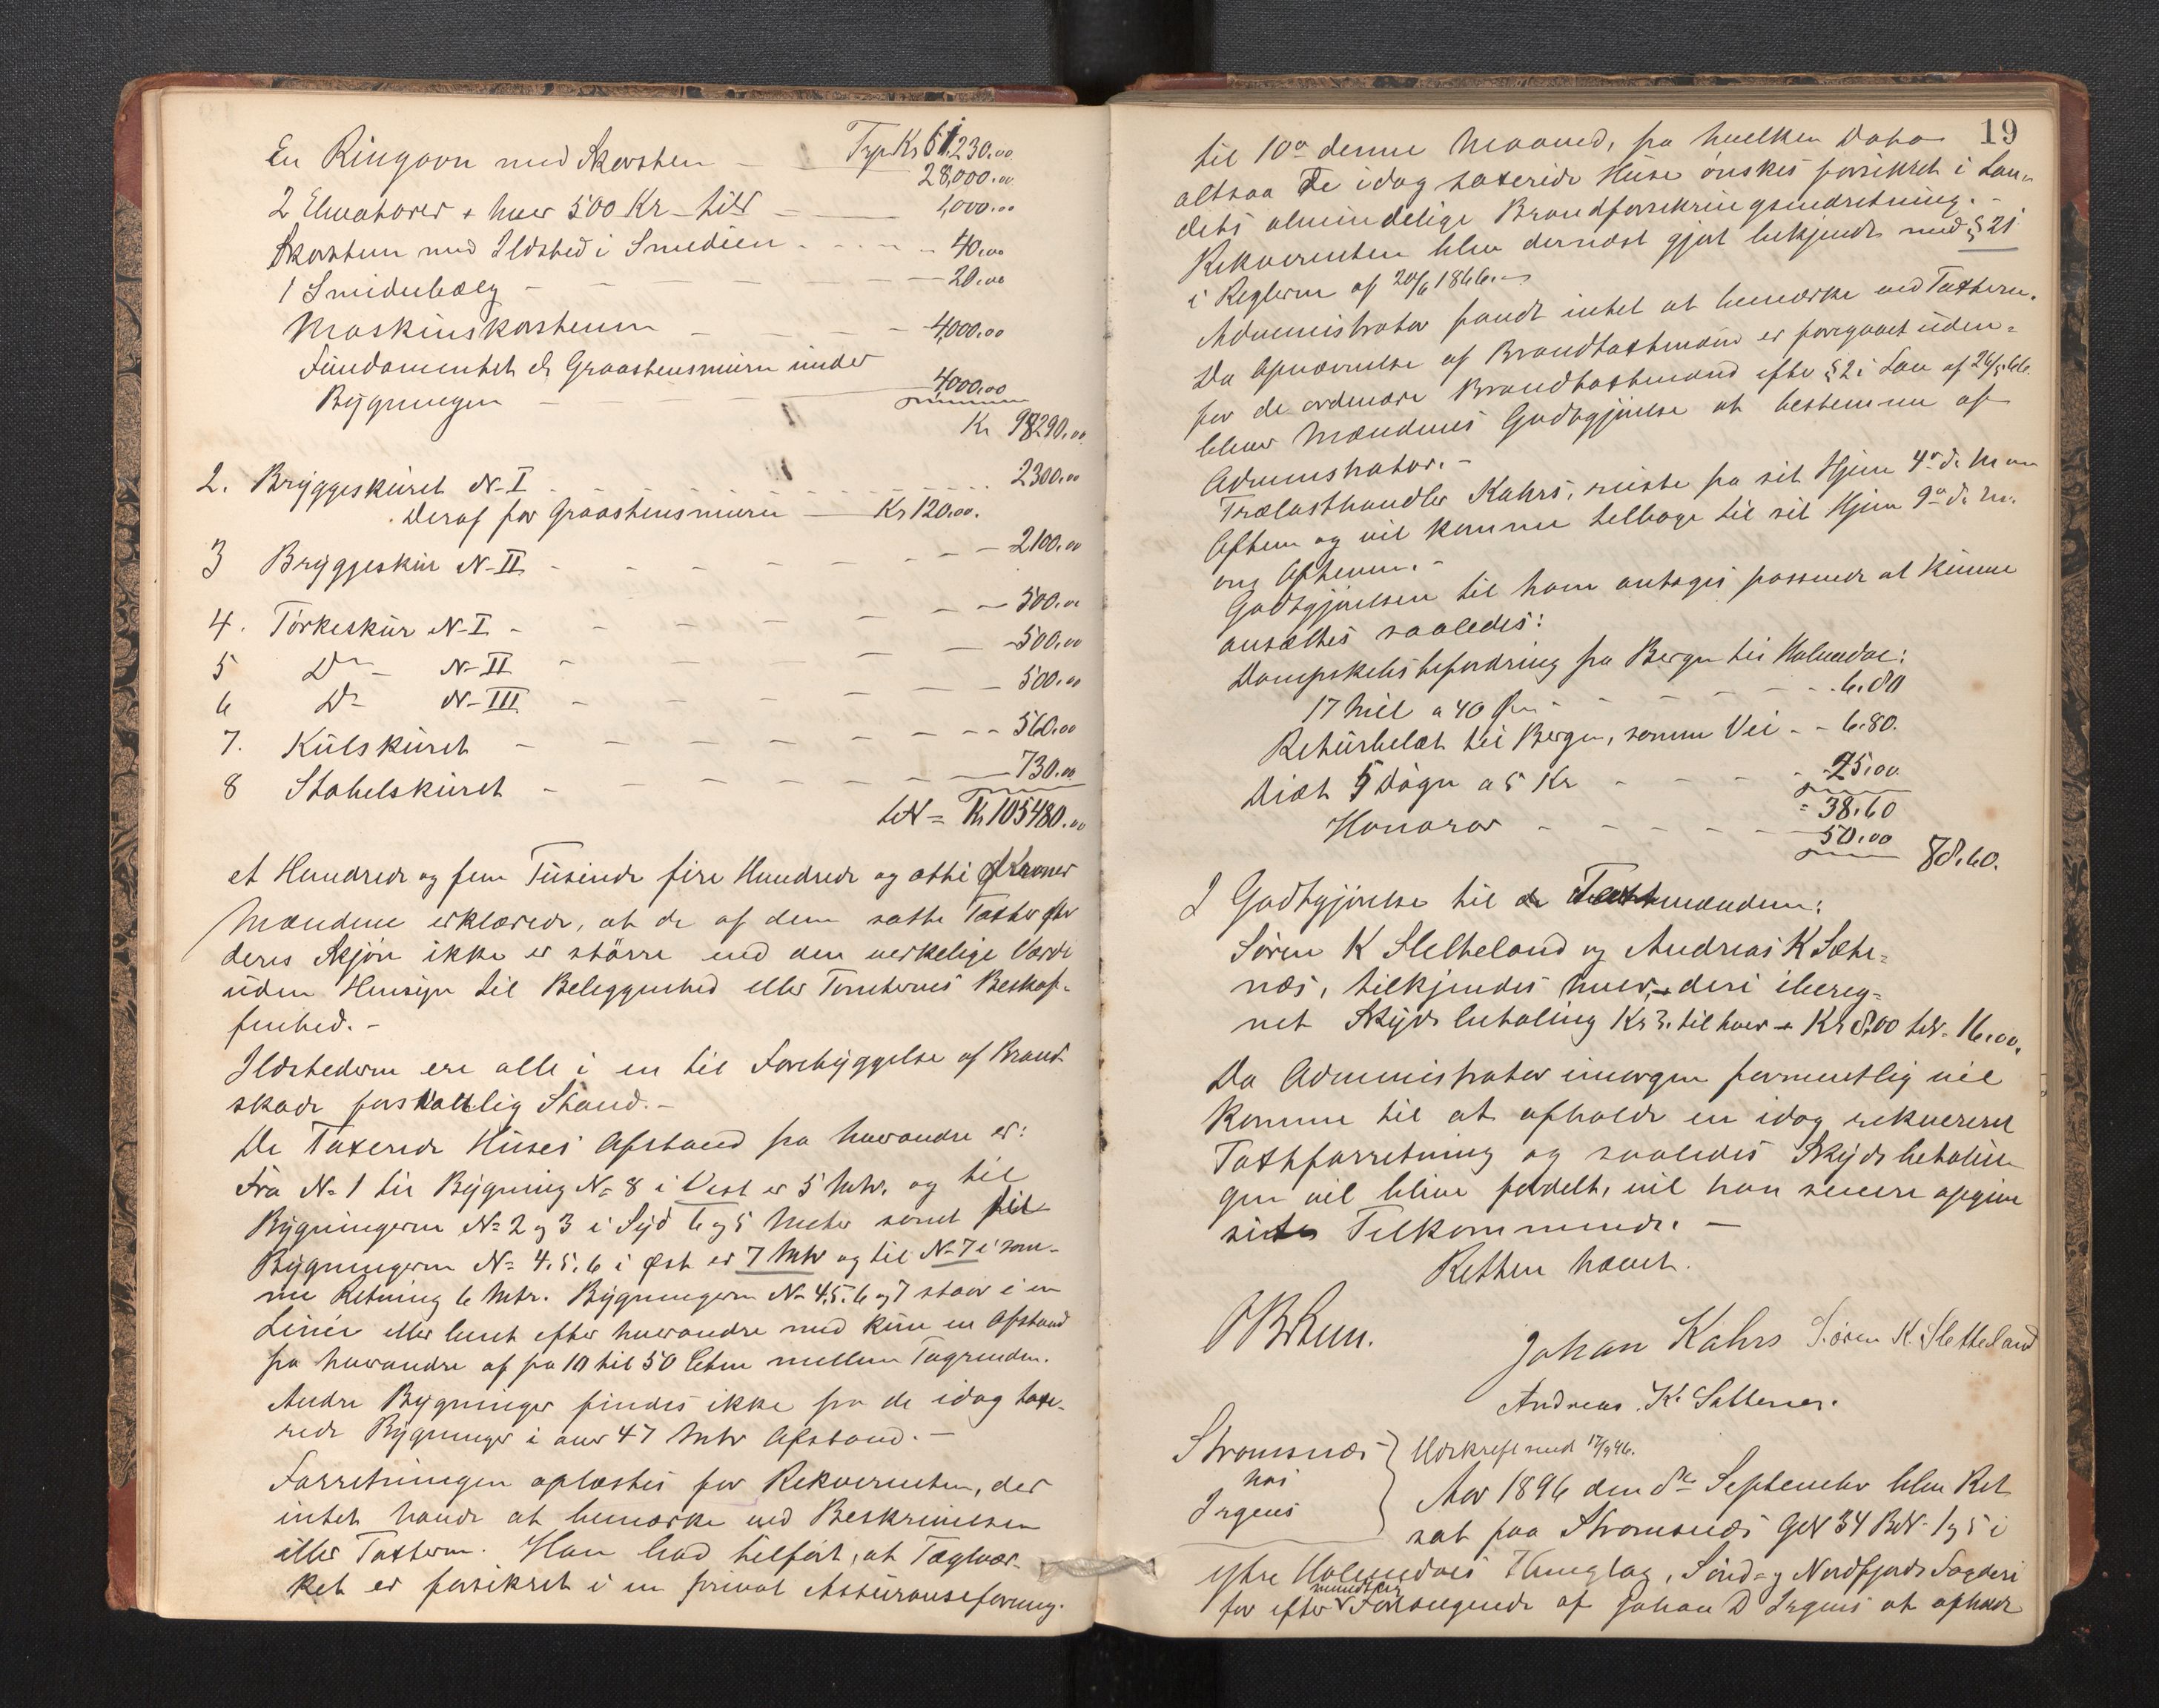 Trp Kr 61,230.00
En Ringovn med Skorsten — 28,000.00
2 Elevatorer + hver 500 Kr — tils — 1,000.00
Skorsten med Ildsted i Smedien - - - - 40.00
1 Smidebælg — — — — 20.00
Maskinskorstenen — — — 4,000.00
Fundamentet & Graastensmuren under
Bygningen — — — 4000.00
Kr 98290.00
2. Bryggeskuret N. I - - - - - - 2300.00
Deraf for Graastensmuren — Kr 120.00.
3 Bryggeskur N. II - - - - - - 2100.00
4. Törkeskur N. I - - - - - - 500.00
5 Do N. II - - - - - - 500.00
6 Do N. III - - - - - - 500.00
7. Kulskuret - - - - - - 560.00
8 Stabelskuret - - - - - - 730.00
tils = Kr 105480.00
et Hundrede og fem Tusinde fire Hundrede og otti Kroner
Mændene erklærede, at de af dem satte Taxter efter
deres Skjön ikke er större end den verkelige Værdi
uden Hensyn til Beleggenhed eller Tomternes Beskaf-
fenhed. -
Ildstederne ere alle i en til Forebyggelse af Brand-
skade forsvarlig Stand. -
De Taxerede Huses Afstand fra hverandre er:
Fra No 1 til Bygning No 8 i Vest er 5 Mtr. og til
Bygningerne No 2 og 3 i Syd 6 og 5 Meter samt til
Bygningerne No 4. 5. 6 i Øst er 7 Mtr og til No 7 i sam-
me Retning 6 Mtr. Bygningerne No 4. 5. 6 og 7 staar i en
Linie eller langs efter hverandre med kun en Afstand
fra hverandre af fra 10 til 50 Ctm mellem Tagrenden.
Andre Bygninger findes ikke fra de idag taxe-
rede Bygninger i over 47 Mtr Afstand. -
Forretningen oplæstes for Rekvirenten, der
intet havde at bemærke ved Beskrivelsen
eller Taxterne. Han bad tilfört, at Teglvær-
ket er forsikret i en privat Assuranseforening.
19
til 10de denne Maaned, fra hvilken Dato
altsaa de idag taxerede Huse önskes forsikret i Lan-
dets almindelige Brandforsikringsindretning. -
Rekvirenten blev dernæst gjort bekjendt med § 21
i Reglerne af 20/6 1866. -
Administrator fandt intet at bemærke ved Taxterne.
Da Opnævnelse af Brandtaxtmænd er foregaaet uden-
for de ordinære Brandtaxtmænd efter § 2 i Lov af 26/5 66.
bliver Mændenes Godtgjörelse at bestemme af
Administrator. -
Trælasthandler Kahrs, reiste fra sit Hjem 4de d. M om
Aftenen og vil komme tilbage til sit Hjem 9de d. M.
om Aftenen. -
Godtgjörelsen til ham antages passende at kunne
ansættes saaledes:
Dampskibsbefordring fra Bergen til Holmedal:
17 Mil a 40 Öre - - - - - 6.80
Returbillet til Bergen, samme Vei - - 6.80.
Diæt 5 Dögn a 5 Kr - - - - 25.00
= 38.60
Honorar - - - - - 50.00
88.60.
I Godtgjörelse til de Taxtmændene:
Sören K Sletteland og Andreas K Sæte-
næs, tilkjendes hver, - deri ibereg-
net Skydsbetaling Kr 3. til hver - Kr 8,00 tils. 16.00.
Da Administrator imorgen formentlig vil
komme til at afholde en idag rekvireret
Taxtforretning og saaledes Skydsbetalin-
gen vil blive fordelt, vil han senere opgive
sit Tilkommende. -
Retten hævet.
Johan Kahrs Sören K. Sletteland
Andreas K. Sættenes.
Strømsnæs
hos
Irgens
Udskrift med 17/9 96.
Aar 1896 den 8de September blev Ret
sat paa Strømsnæs GN 34 BN. 1 og 5 i
ytre Holmedals Thinglag, Sönd- og Nordfjords Fogderi
for efter mundtlig Forlangende af Johan D Irgens at afholde